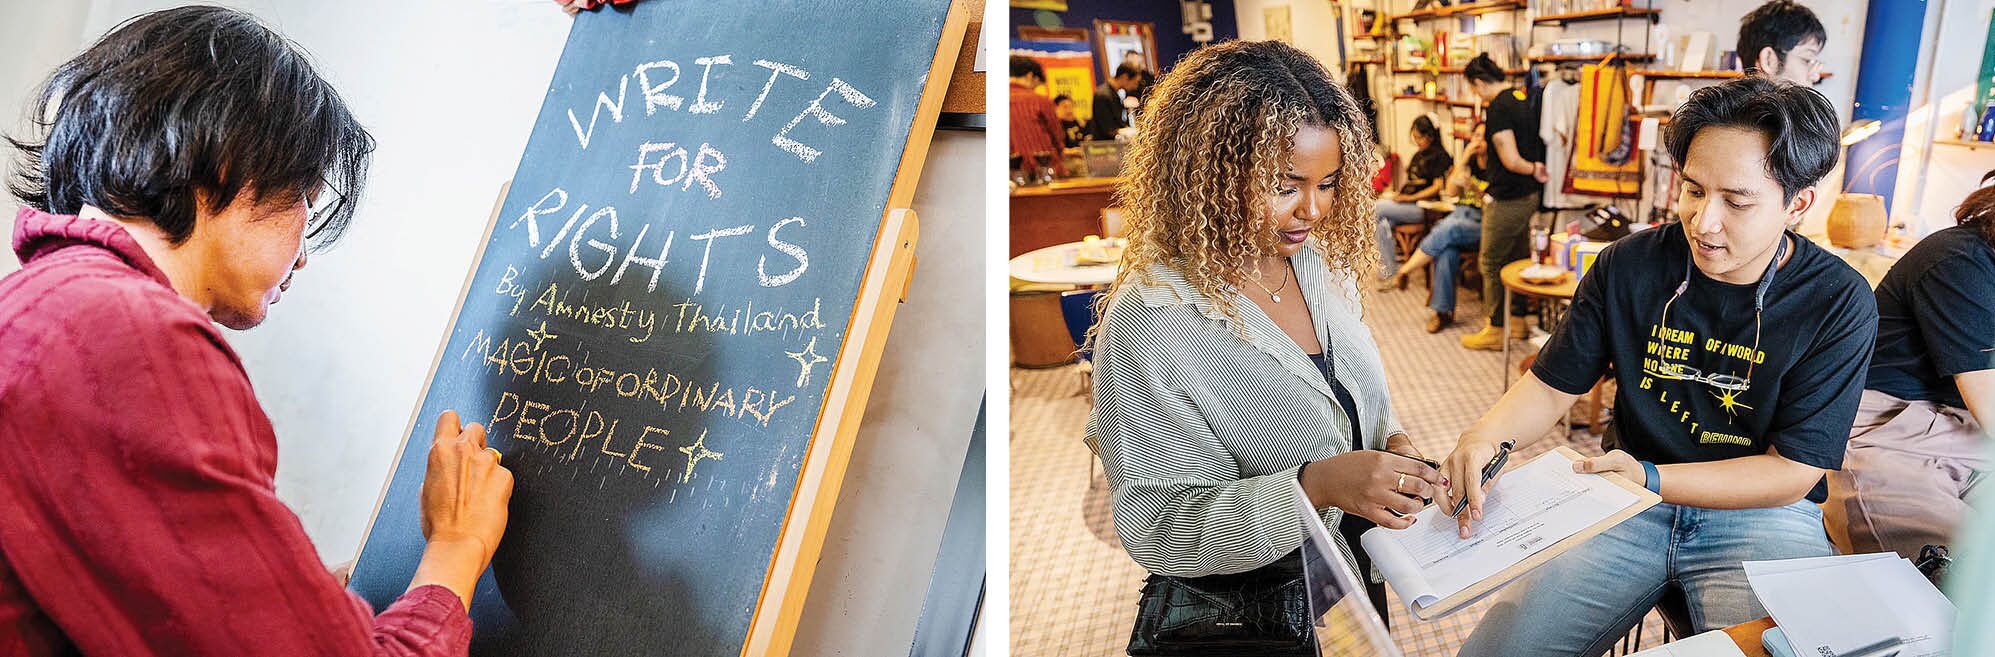 WRITE
FOR
RIGHTS
By Amnesty Thailand
MAGIC OF ORDINARY
PEOPLE
I DREAM OF A WORLD
WHERE
NO ONE
IS
LEFT
BEHIND